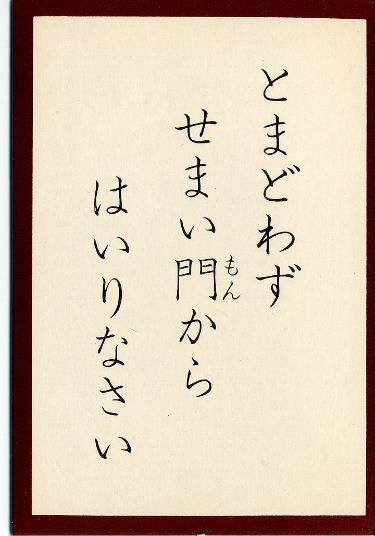 とまどわず
せまい門から
もん
はいりなさい